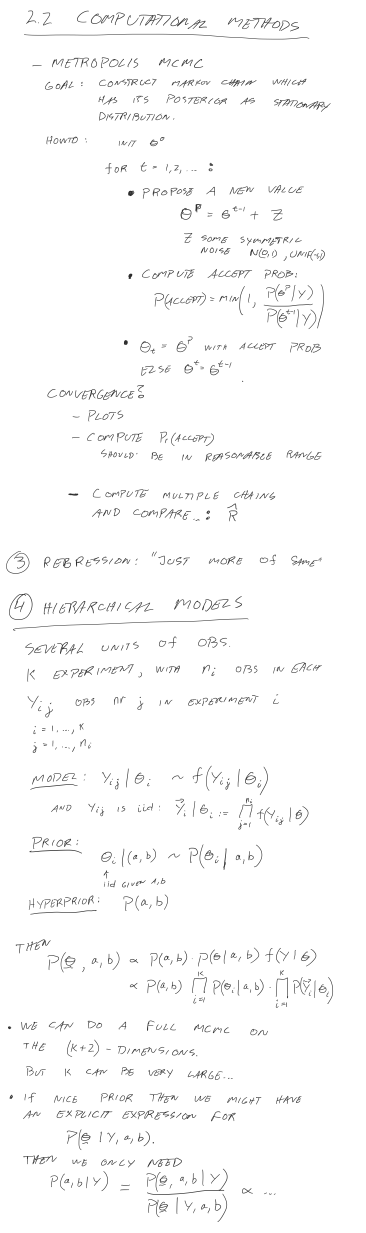 2.2 COMPUTATIONAL METHODS
- METROPOLIS MCMC
GOAL: CONSTRUCT MARKOV CHAIN WHICH
HAS ITS POSTERIOR AS STATIONARY
DISTRIBUTION.
HOWTO: INIT θ⁰
for t = 1,2,... :
• PROPOSE A NEW VALUE
θᴾ = θᵗ⁻¹ + Z
Z SOME SYMMETRIC
NOISE N(0,1), UNIF(-1,1)
• COMPUTE ACCEPT PROB:
P(ACCEPT) = MIN(1, P(θᴾ|Y) / P(θᵗ⁻¹|Y))
• θₜ = θᴾ WITH ACCEPT PROB
ELSE θᵗ = θᵗ⁻¹
CONVERGENCE?
- PLOTS
- COMPUTE Pr(ACCEPT)
SHOULD BE IN REASONABLE RANGE
- COMPUTE MULTIPLE CHAINS
AND COMPARE...: R̂
③ REGRESSION: "JUST MORE OF SAME"
④ HIERARCHICAL MODELS
SEVERAL UNITS OF OBS.
K EXPERIMENT, WITH nᵢ OBS IN EACH
Yᵢⱼ OBS nr j IN EXPERIMENT i
i = 1, ..., K
j = 1, ..., nᵢ
MODEL: Yᵢⱼ | θᵢ ~ f(Yᵢⱼ | θᵢ)
AND Yᵢⱼ IS iid: Y⃗ᵢ | θᵢ := ∏ⱼ₌₁ⁿⁱ f(Yᵢⱼ | θ)
PRIOR: θᵢ | (a,b) ~ P(θᵢ | a,b)
↑
iid GIVEN A,B
HYPERPRIOR: P(a,b)
THEN
P(θ, a,b) ∝ P(a,b) · P(θ | a,b) f(Y | θ)
∝ P(a,b) ∏ᵢ₌₁ᴷ P(θᵢ | a,b) · ∏ᵢ₌₁ᴷ P(Y⃗ᵢ | θᵢ)
• WE CAN DO A FULL MCMC ON
THE (K+2) - DIMENSIONS.
BUT K CAN BE VERY LARGE...
• IF NICE PRIOR THEN WE MIGHT HAVE
AN EXPLICIT EXPRESSION FOR
P(θ | Y, a,b).
THEN WE ONLY NEED
P(a,b | Y) = P(θ, a,b | Y) / P(θ | Y, a,b) ∝ ...